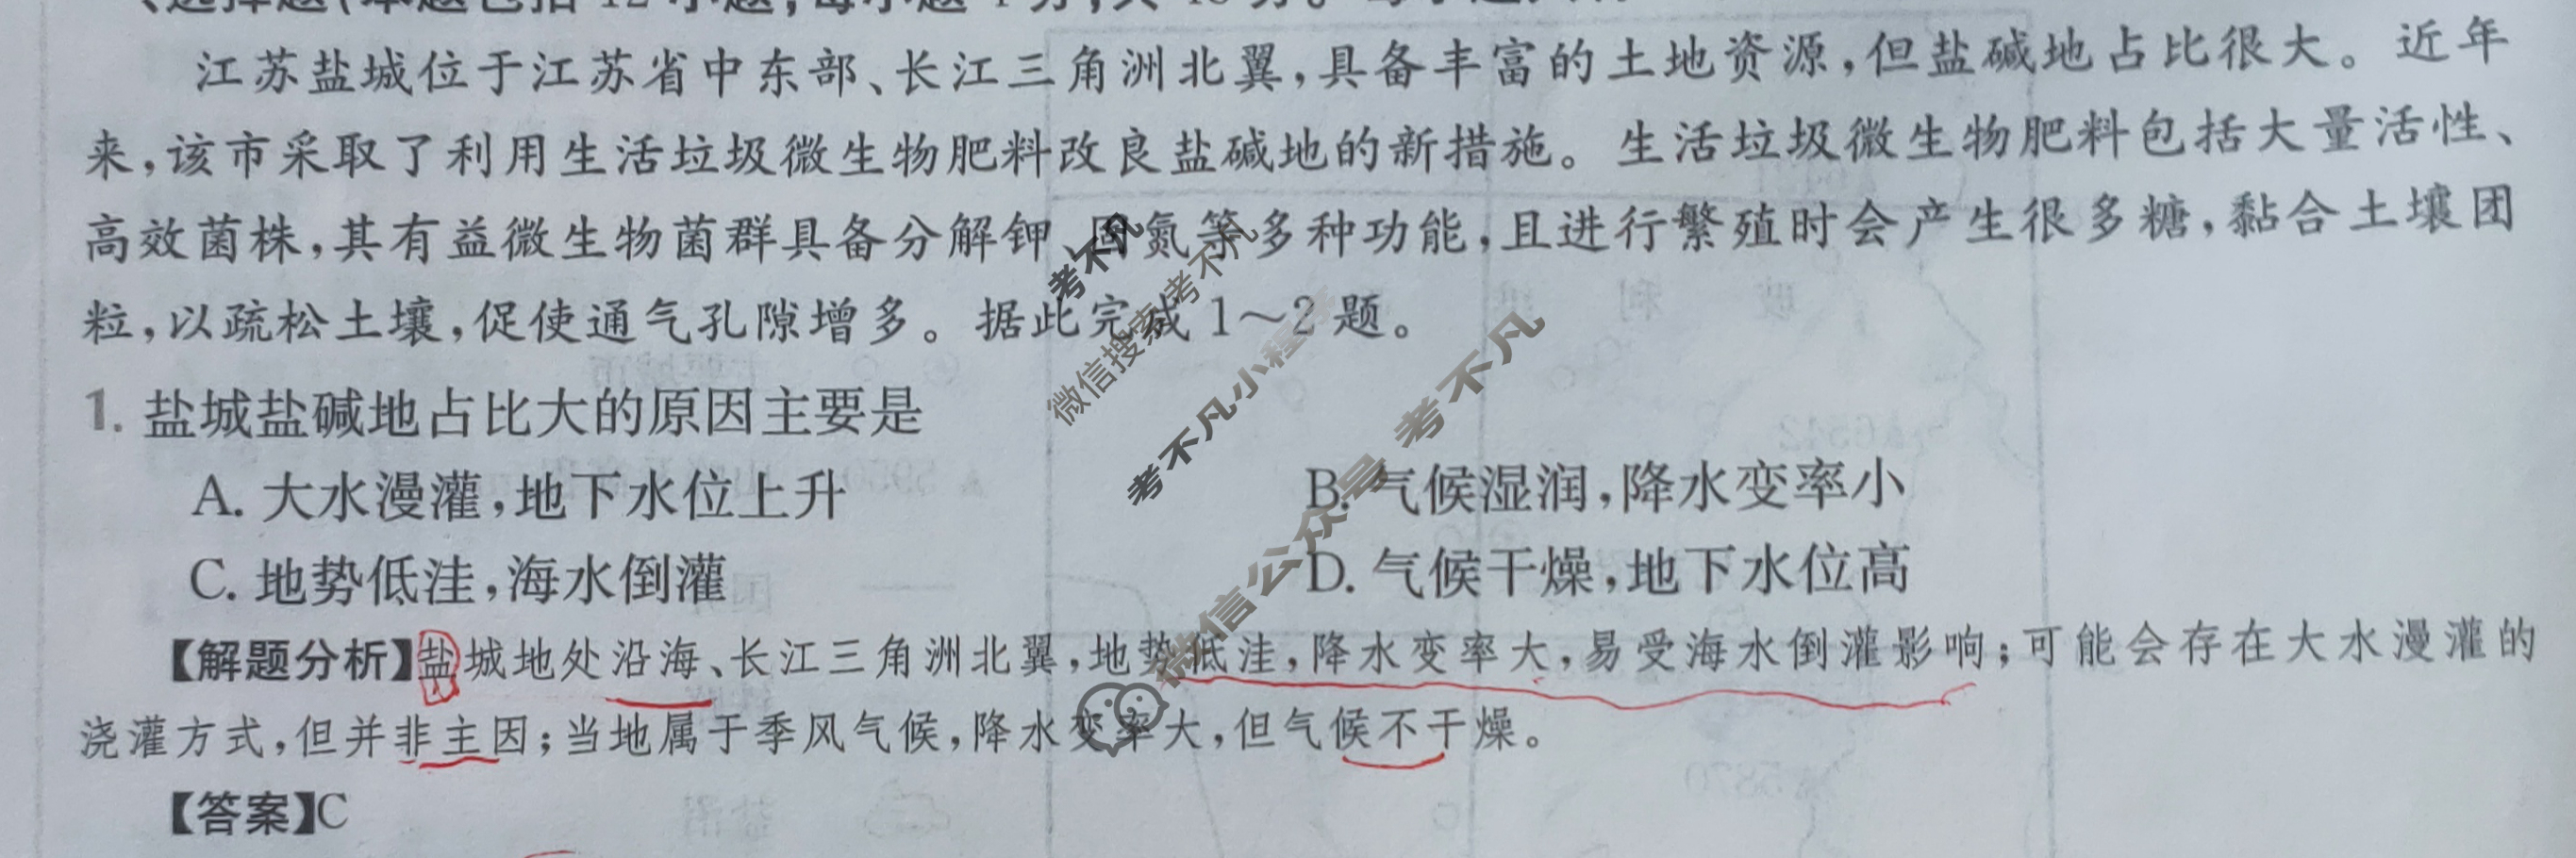 江苏盐城位于江苏省中东部、长江三角洲北翼,具备丰富的土地资源,但盐碱地占比很大。近年
来,该市采取了利用生活垃圾微生物肥料改良盐碱地的新措施。生活垃圾微生物肥料包括大量活性、
高效菌株,其有益微生物菌群具备分解钾、固氮等多种功能,且进行繁殖时会产生很多糖,黏合土壤团
粒,以疏松土壤,促使通气孔隙增多。据此完成1~2题。
1. 盐城盐碱地占比大的原因主要是
A. 大水漫灌,地下水位上升 B. 气候湿润,降水变率小
C. 地势低洼,海水倒灌 D. 气候干燥,地下水位高
【解题分析】盐城地处沿海、长江三角洲北翼,地势低洼,降水变率大,易受海水倒灌影响;可能会存在大水漫灌的
浇灌方式,但并非主因;当地属于季风气候,降水变率大,但气候不干燥。
【答案】C
考不凡
微信搜索考不凡
考不凡小程序
微信公众号 考不凡